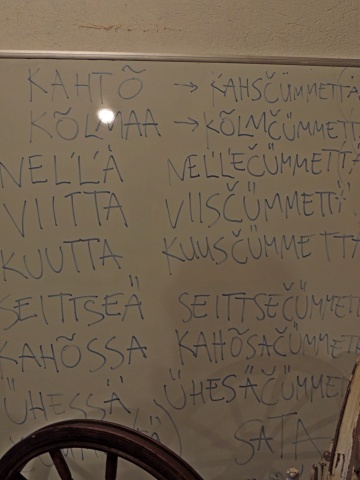 KAHTÕ → KAHSČÜMMETTÄ
KÕLMAA → KÕLMČÜMMETT
NEĽĽÄ NEĽĽEČÜMMETTÄ
VIITTA VIISČÜMMETT
KUUTTA KUUSČÜMMETTÄ
SEITTSEÄ SEITTSEČÜMMETT
KAHÕSSA KAHÕSAČÜMMET
ÜHESSÄ ÜHESÄČÜMMET
SATA